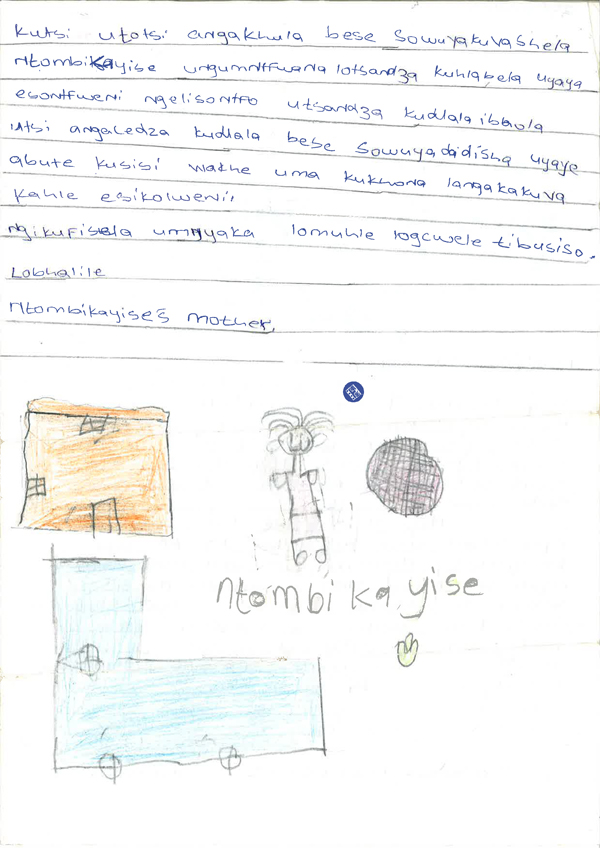 Kutsi utotsi angakhula bese Sowuyakuvashela
Ntombikayise ungumntfwana lotsandza kuhlabela uyaya
esontfweni ngelisontfo utsandza kudlala ibhola
utsi angacedza kudlala bese sowuyadadisha uyaye
abute kusisi wakhe uma kukhona langakakuva
kahle esikolweni,
Ngikufisela umnyaka lomuhle logcwele tibusiso.
Lobhalile
Ntombikayise's mother.
ntombi kayise